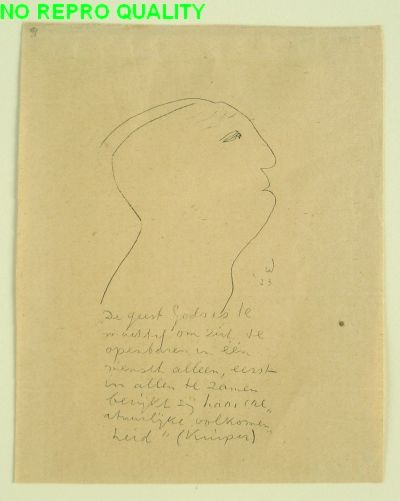 NO REPRO QUALITY
W
23
"De geest Gods is te
machtig om zich te
openbaren in één
mensch alleen, eerst
in allen te zamen
bereikt zij haar
natuurlijke volkomen
heid" (Kuiper)